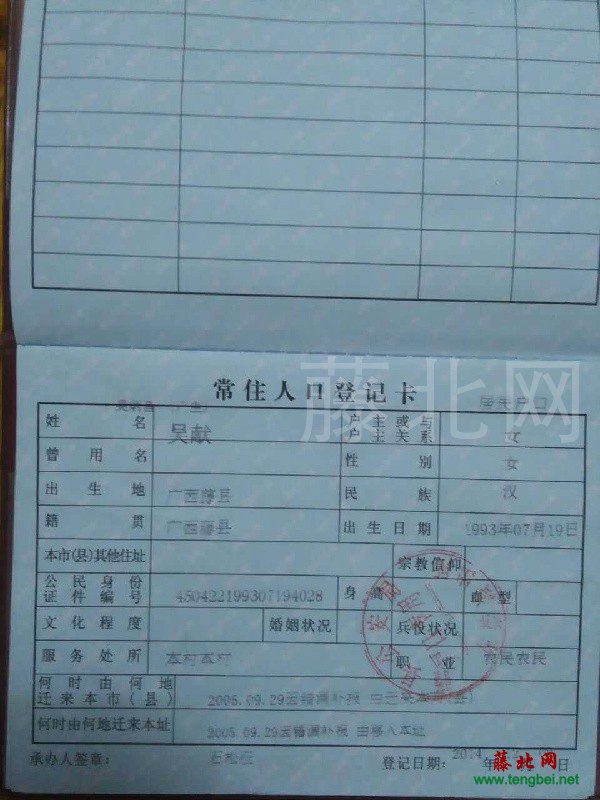 常住人口登记卡
姓名 吴献 户主或与户主关系 女
曾用名 性别 女
出生地 广西藤县 民族 汉
籍贯 广西藤县 出生日期 1993年07月19日
本市(县)其他住址 宗教信仰
公民身份证件编号 450422199307194028 身高 血型
文化程度 婚姻状况 兵役状况
服务处所 本村本村 职业 农民农民
何时由何地迁来本市(县) 2005.09.29因错漏补报 由
何时由何地迁来本址 2005.09.29因错漏补报 由移入本址
承办人签章: 登记日期: 2014年 日
藤北网
藤北网
www.tengbei.net